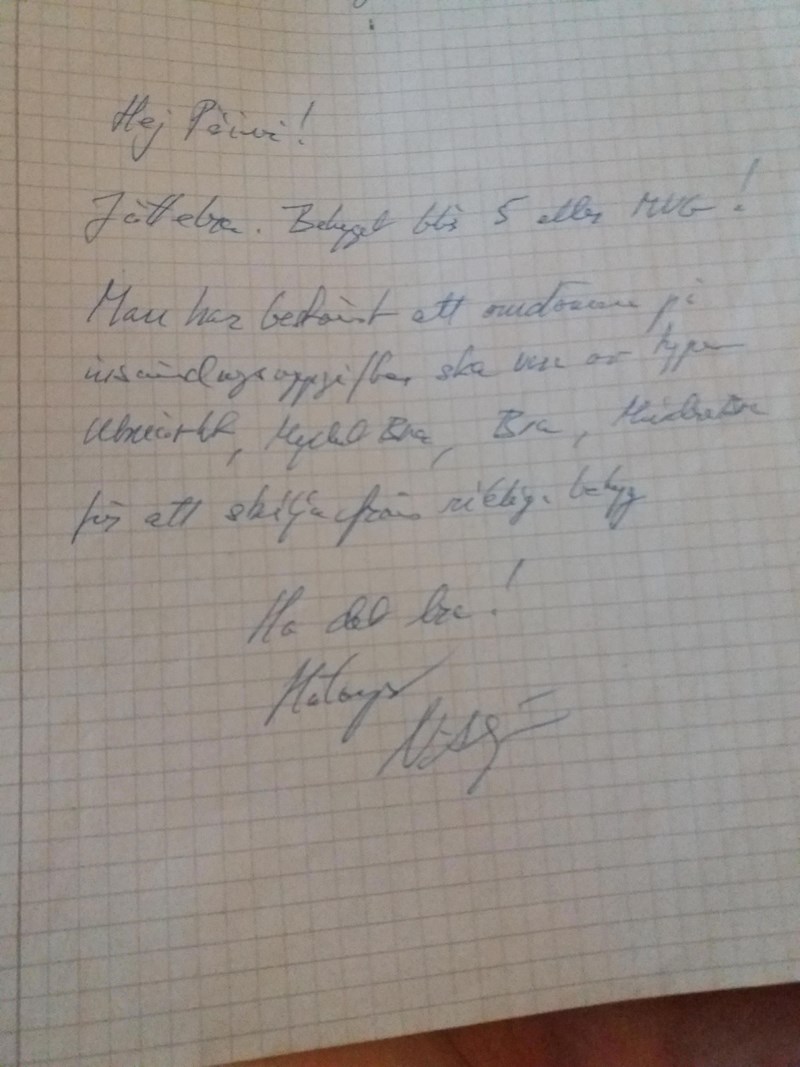 Hej Päivi!
Jättebra. Betyget blir 5 eller MVG!
Man har bestämt att omdömen på
insändningsuppgifter ska vara av typen
Utmärkt, Mycket Bra, Bra, Mindre Bra
för att skilja från riktiga betyg
Ha det bra!